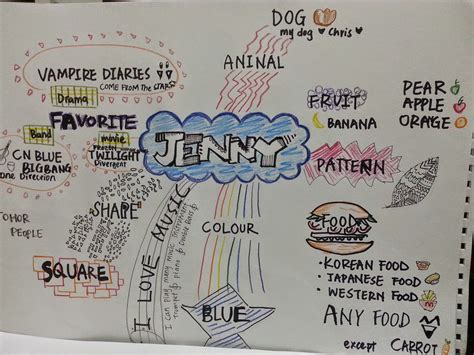 DOG
my dog Chris
ANINAL
VAMPIRE DIARIES
COME FROM THE
Drama
FAVORITE
Band
movie
CN BLUE
BIGBANG
One Direction
TWILIGHT
Divergent
JENNY
FRUIT
BANANA
PEAR
APPLE
ORANGE
PATTERN
SHAPE
SQUARE
PEOPLE
I LOVE MUSIC
I can play many music instrument
Trumpet piano Double Bass
COLOUR
BLUE
FOOD
• KOREAN FOOD
• JAPANESE FOOD
• WESTERN FOOD
ANY FOOD
except CARROT